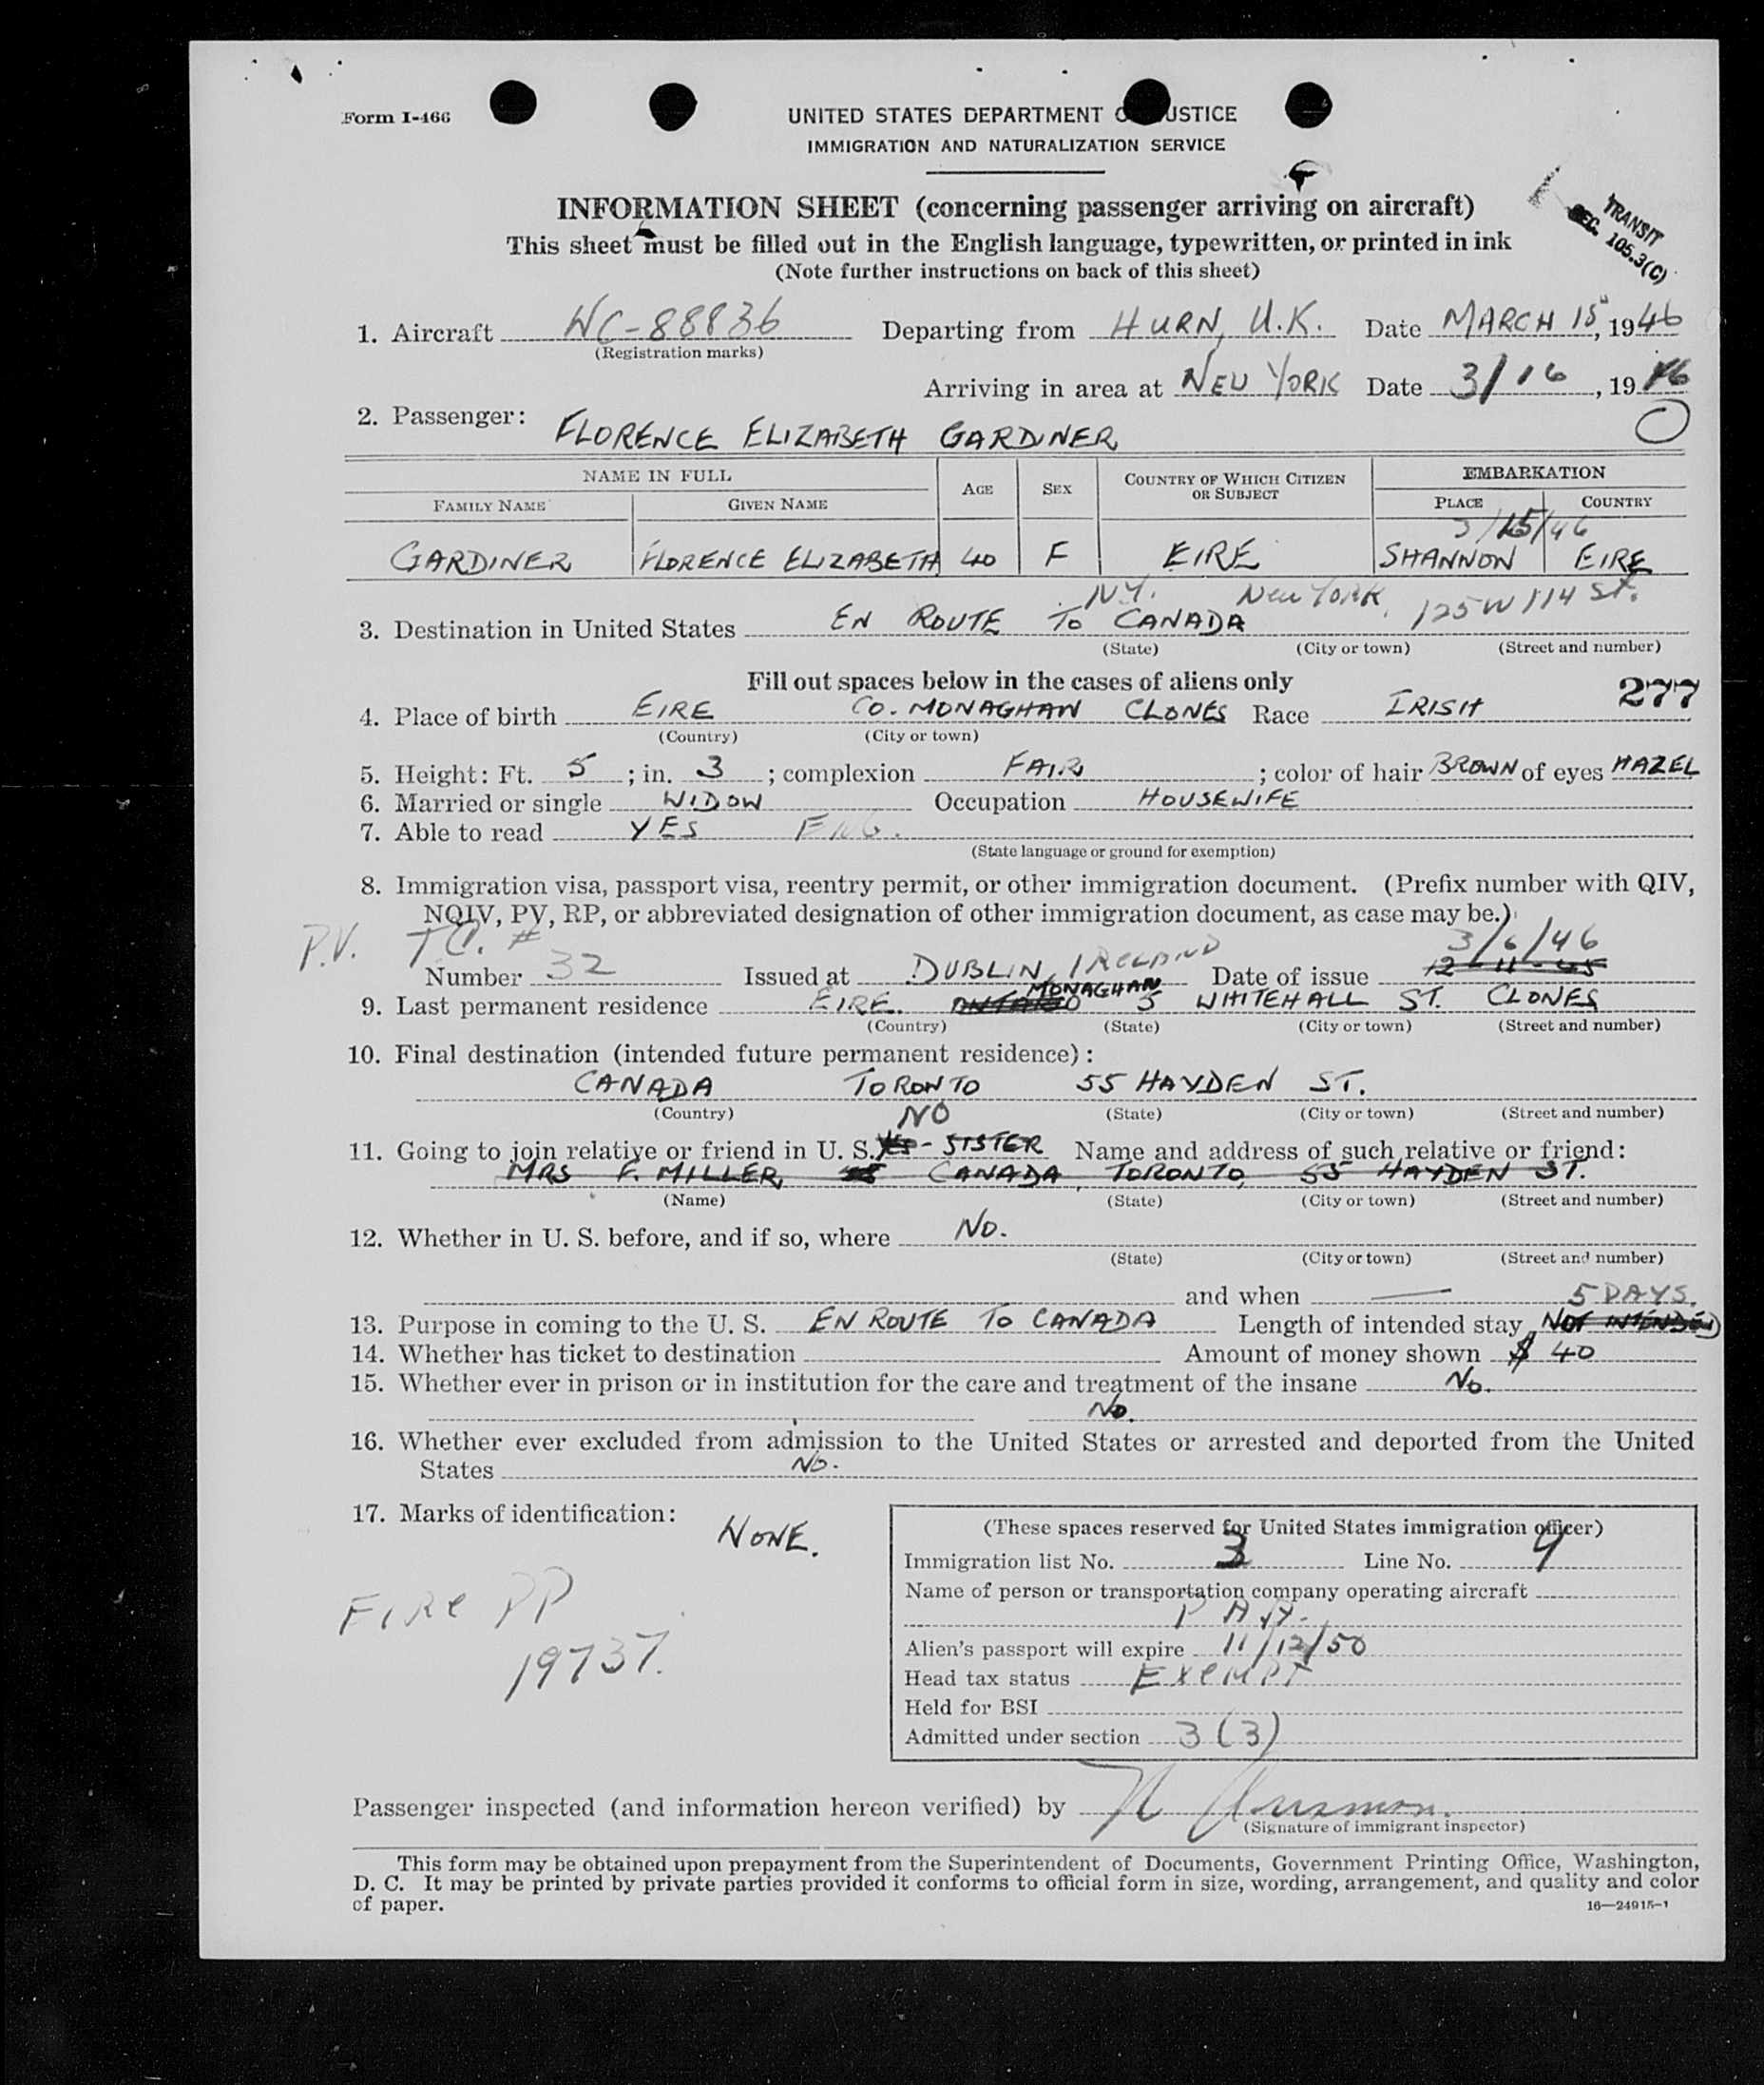 Form I-466
UNITED STATES DEPARTMENT OF JUSTICE
IMMIGRATION AND NATURALIZATION SERVICE
INFORMATION SHEET (concerning passenger arriving on aircraft)
This sheet must be filled out in the English language, typewritten, or printed in ink
(Note further instructions on back of this sheet)
TRANSIT
SEC. 105.3(C)
1. Aircraft NC-88836 Departing from HURN, U.K. Date MARCH 15, 1946
(Registration marks)
Arriving in area at NEW YORK Date 3/16, 1946
2. Passenger: FLORENCE ELIZABETH GARDINER
NAME IN FULL AGE SEX COUNTRY OF WHICH CITIZEN OR SUBJECT EMBARKATION
FAMILY NAME GIVEN NAME PLACE COUNTRY
3/15/46
GARDINER FLORENCE ELIZABETH 40 F EIRE SHANNON EIRE
N.Y. New York, 125 W 114 St.
3. Destination in United States EN ROUTE TO CANADA
(State) (City or town) (Street and number)
Fill out spaces below in the cases of aliens only 277
4. Place of birth EIRE CO. MONAGHAN CLONES Race IRISH
(Country) (City or town)
5. Height: Ft. 5; in. 3; complexion FAIR; color of hair BROWN of eyes HAZEL
6. Married or single WIDOW Occupation HOUSEWIFE
7. Able to read YES ENG.
(State language or ground for exemption)
8. Immigration visa, passport visa, reentry permit, or other immigration document. (Prefix number with QIV,
NQIV, PV, RP, or abbreviated designation of other immigration document, as case may be.)
P.V. T.C. # 3/6/46
Number 32 Issued at DUBLIN, IRELAND Date of issue 12-11-45
MONAGHAN
9. Last permanent residence EIRE. ONTARIO 5 WHITEHALL ST. CLONES
(Country) (State) (City or town) (Street and number)
10. Final destination (intended future permanent residence):
CANADA TORONTO 55 HAYDEN ST.
(Country) (State) (City or town) (Street and number)
NO
11. Going to join relative or friend in U. S. YES - SISTER Name and address of such relative or friend:
MRS F. MILLER, CANADA, TORONTO, 55 HAYDEN ST.
(Name) (State) (City or town) (Street and number)
12. Whether in U. S. before, and if so, where NO.
(State) (City or town) (Street and number)
and when — 5 DAYS.
13. Purpose in coming to the U. S. EN ROUTE TO CANADA Length of intended stay NOT INTENDED
14. Whether has ticket to destination Amount of money shown $ 40
15. Whether ever in prison or in institution for the care and treatment of the insane No.
No.
16. Whether ever excluded from admission to the United States or arrested and deported from the United
States No.
17. Marks of identification: NONE.
EIRE PP
19737.
(These spaces reserved for United States immigration officer)
Immigration list No. 3 Line No. 4
Name of person or transportation company operating aircraft
P A A.
Alien's passport will expire 11/12/50
Head tax status Exempt
Held for BSI
Admitted under section 3(3)
Passenger inspected (and information hereon verified) by
(Signature of immigrant inspector)
This form may be obtained upon prepayment from the Superintendent of Documents, Government Printing Office, Washington,
D. C. It may be printed by private parties provided it conforms to official form in size, wording, arrangement, and quality and color
of paper.
16—24915-1